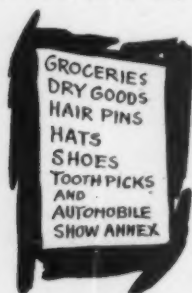 GROCERIES
DRY GOODS
HAIR PINS
HATS
SHOES
TOOTH PICKS
AND
AUTOMOBILE
SHOW ANNEX